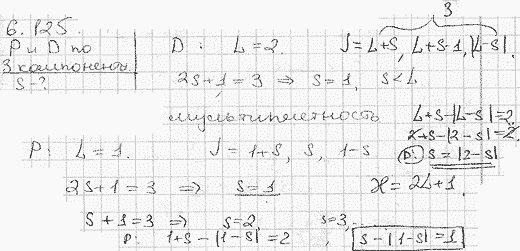 6.125.
P и D по
3 компоненты
S-?
D: L=2. J=L+S, L+S-1, |L-S|.
3
2S+1=3 ⇒ S=1, S<L
мультиплетность
L+S-|L-S|=2.
2+S-|2-S|=2.
D: S=|2-S|
P: L=1. J=1+S, S, 1-S
2S+1=3 ⇒ S=1
ϰ=2L+1.
S+1=3 ⇒ S=2, S=3,
P: 1+S-|1-S|=2, S-|1-S|=1